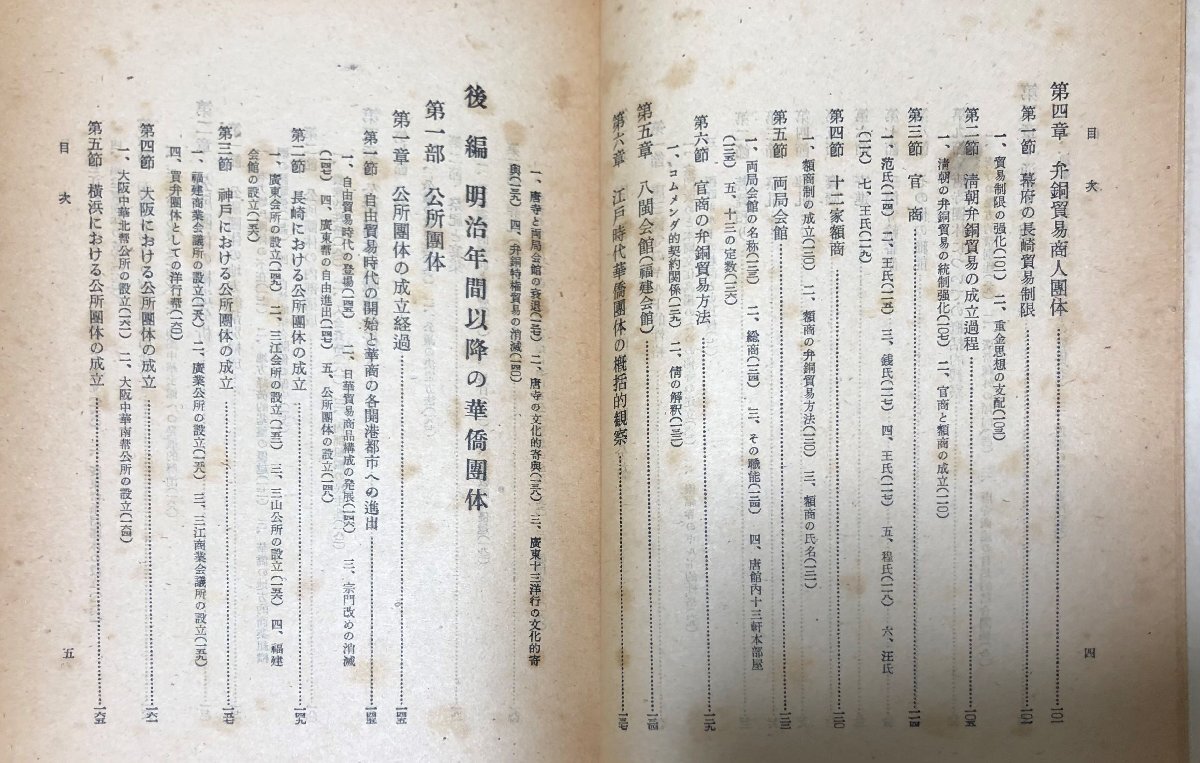 目次
四
第四章 弁銅貿易商人団体……一〇一
第一節 幕府の長崎貿易制限……一〇一
一、貿易制限の强化(一〇一) 二、重金思想の支配(一〇三)
第二節 淸朝弁銅貿易の成立過程……一〇五
一、淸朝の弁銅貿易の統制强化(一〇七) 二、官商と額商の成立(一一〇)
第三節 官商……一一四
一、范氏(一一四) 二、王氏(一一五) 三、銭氏(一一七) 四、王氏(一一七) 五、程氏(一一八) 六、汪氏
(一一八) 七、王氏(一一九)
第四節 十二家額商……一二〇
一、額商制の成立(一二〇) 二、額商の弁銅貿易方法(一二〇) 三、額商の氏名(一二一)
第五節 両局会館……一二三
一、両局会館の名称(一二三) 二、総商(一二四) 三、その職能(一二四) 四、唐館内十三軒本部屋
(一二五) 五、十三の定数(一二六)
第六節 官商の弁銅貿易方法……一二九
一、コムメンダ的契約関係(一二九) 二、倩の解釈(一三一)
第五章 八閩会館(福建会館)……一三四
第六章 江戸時代華僑團体の槪括的観察……一三七
一、唐寺と両局会館の衰退(一三七) 二、唐寺の文化的寄與(一三八) 三、廣東十三洋行の文化的寄
與(一三九) 四、弁銅特権貿易の消滅(一四〇)
後編 明治年間以降の華僑團体
第一部 公所團体
第一章 公所團体の成立経過……一四五
第一節 自由貿易時代の開始と華商の各開港都市への進出……一四五
一、自由貿易時代の登場(一四五) 二、日華貿易商品構成の発展(一四六) 三、宗門改めの消滅
(一四七) 四、廣東幇の自由進出(一四七) 五、公所團体の設立(一四八)
第二節 長崎における公所團体の成立……一四九
一、廣東会所の設立(一四九) 二、三江会所の設立(一五一) 三、三山公所の設立(一五六) 四、福建
会館の設立(一五六)
第三節 神戸における公所團体の成立……一五七
一、福建商業会議所の設立(一五八) 二、廣業公所の設立(一五八) 三、三江商業会議所の設立(一五九)
四、買弁團体としての洋行幇(一六〇)
第四節 大阪における公所團体の成立……一六一
一、大阪中華北幇公所の設立(一六二) 二、大阪中華南幇公所の設立(一六四)
第五節 横浜における公所團体の成立……一六五
目次
五